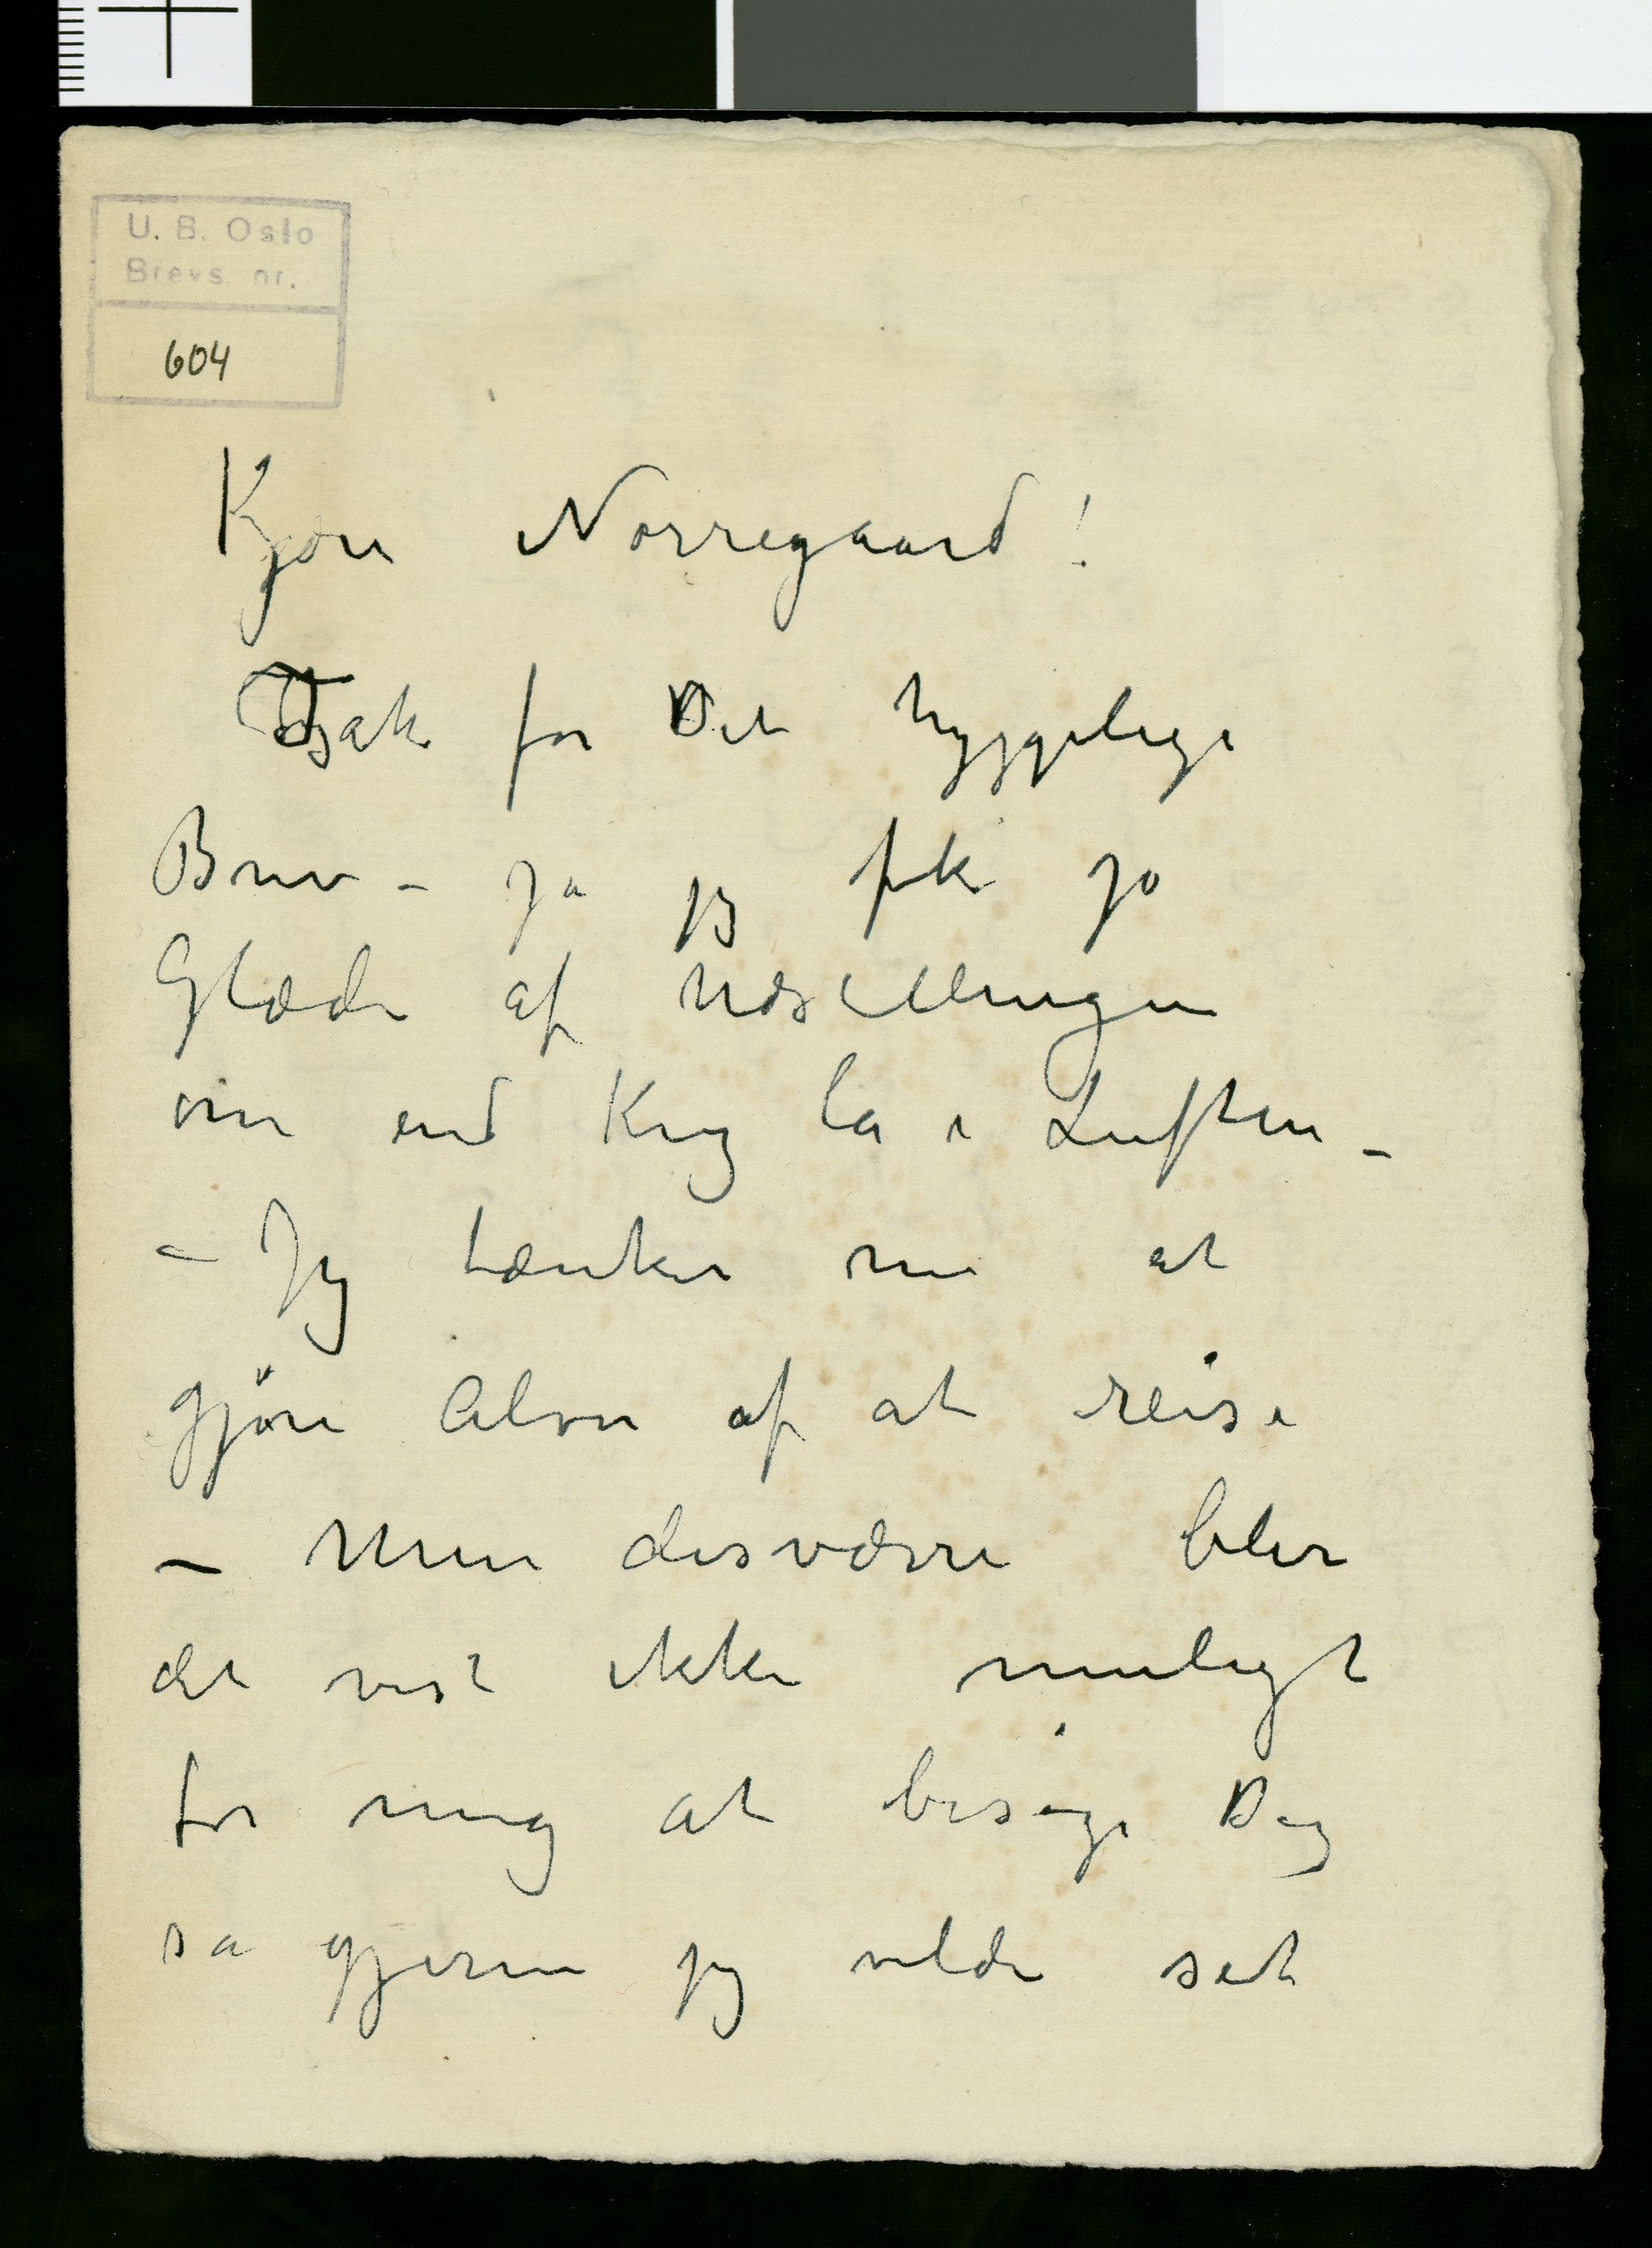 U. B. Oslo
Brevs. nr.
604
Kjære Nørregaard!
Tak for Dit hyggelige
Brev – Ja jeg fik jo
Glæde af Udstillingen
om end Krig la i Luften –
– Jeg tænker nu at
gjøre Alvor af at reise
– Men desværre blir
det vist ikke muligt
for mig at besøge Dig
så gjerne jeg vilde set